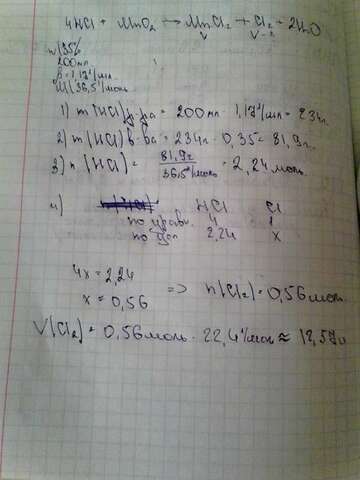 4HCl + MnO₂ → MnCl₂ + Cl₂ + 2H₂O
V-?
w 35%
200 мл
ρ = 1,17 г/мл
M 36,5 г/моль
1) m(HCl) р-ра = 200 мл · 1,17 г/мл = 234 г
2) m(HCl) в-ва = 234 г · 0,35 = 81,9 г
3) n(HCl) = 81,9 г / 36,5 г/моль = 2,24 моль
4) HCl Cl
по уравн. 4 1
по усл 2,24 x
4x = 2,24
x = 0,56 => n(Cl₂) = 0,56 моль
V(Cl₂) = 0,56 моль · 22,4 л/моль ≈ 12,57 л